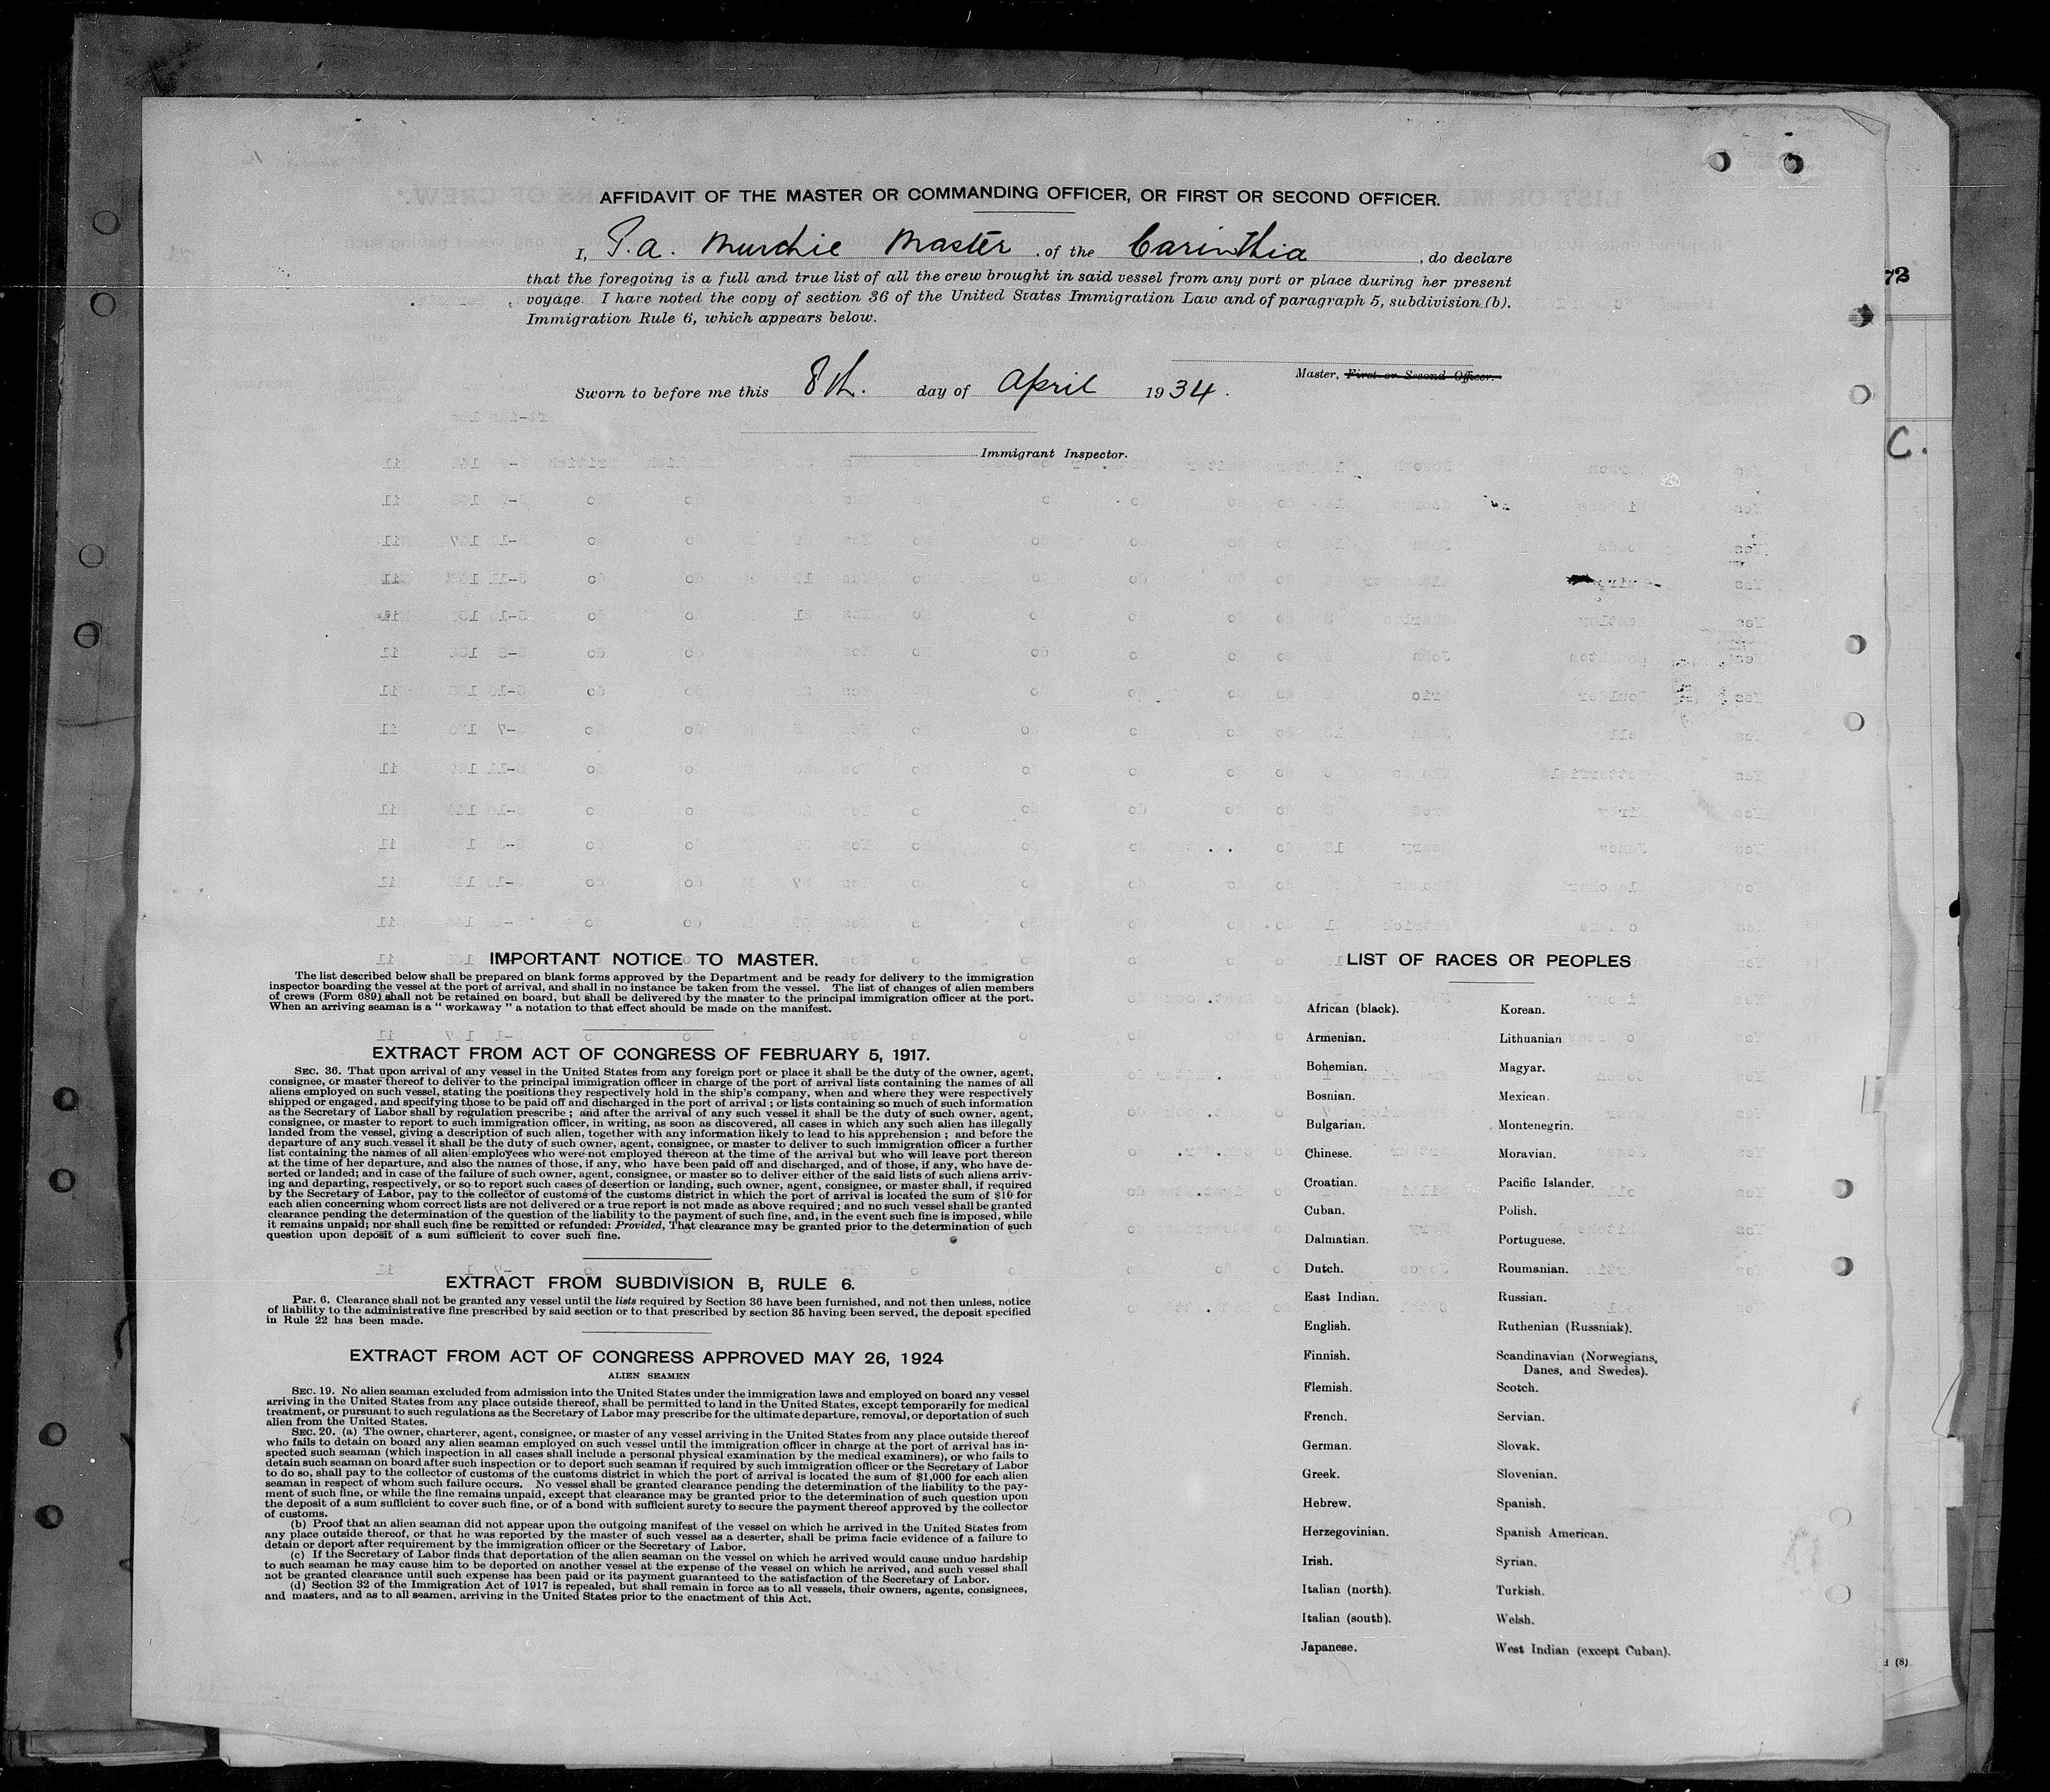 AFFIDAVIT OF THE MASTER OR COMMANDING OFFICER, OR FIRST OR SECOND OFFICER.
I, P.A. Murchie Master, of the Carinthia, do declare
that the foregoing is a full and true list of all the crew brought in said vessel from any port or place during her present
voyage. I have noted the copy of section 36 of the United States Immigration Law and of paragraph 5, subdivision (b).
Immigration Rule 6, which appears below.
Master, First or Second Officer.
Sworn to before me this 8th. day of April 1934.
Immigrant Inspector.
72
C.
IMPORTANT NOTICE TO MASTER.
The list described below shall be prepared on blank forms approved by the Department and be ready for delivery to the immigration
inspector boarding the vessel at the port of arrival, and shall in no instance be taken from the vessel. The list of changes of alien members
of crews (Form 689) shall not be retained on board, but shall be delivered by the master to the principal immigration officer at the port.
When an arriving seaman is a " workaway " a notation to that effect should be made on the manifest.
EXTRACT FROM ACT OF CONGRESS OF FEBRUARY 5, 1917.
SEC. 36. That upon arrival of any vessel in the United States from any foreign port or place it shall be the duty of the owner, agent,
consignee, or master thereof to deliver to the principal immigration officer in charge of the port of arrival lists containing the names of all
aliens employed on such vessel, stating the positions they respectively hold in the ship's company, when and where they were respectively
shipped or engaged, and specifying those to be paid off and discharged in the port of arrival ; or lists containing so much of such information
as the Secretary of Labor shall by regulation prescribe ; and after the arrival of any such vessel it shall be the duty of such owner, agent,
consignee, or master to report to such immigration officer, in writing, as soon as discovered, all cases in which any such alien has illegally
landed from the vessel, giving a description of such alien, together with any information likely to lead to his apprehension ; and before the
departure of any such vessel it shall be the duty of such owner, agent, consignee, or master to deliver to such immigration officer a further
list containing the names of all alien employees who were not employed thereon at the time of the arrival but who will leave port thereon
at the time of her departure, and also the names of those, if any, who have been paid off and discharged, and of those, if any, who have de-
serted or landed; and in case of the failure of such owner, agent, consignee, or master so to deliver either of the said lists of such aliens arriv-
ing and departing, respectively, or so to report such cases of desertion or landing, such owner, agent, consignee, or master shall, if required
by the Secretary of Labor, pay to the collector of customs of the customs district in which the port of arrival is located the sum of $10 for
each alien concerning whom correct lists are not delivered or a true report is not made as above required ; and no such vessel shall be granted
clearance pending the determination of the question of the liability to the payment of such fine, and, in the event such fine is imposed, while
it remains unpaid; nor shall such fine be remitted or refunded: Provided, That clearance may be granted prior to the determination of such
question upon deposit of a sum sufficient to cover such fine.
EXTRACT FROM SUBDIVISION B, RULE 6.
Par. 6. Clearance shall not be granted any vessel until the lists required by Section 36 have been furnished, and not then unless, notice
of liability to the administrative fine prescribed by said section or to that prescribed by section 35 having been served, the deposit specified
in Rule 22 has been made.
EXTRACT FROM ACT OF CONGRESS APPROVED MAY 26, 1924
ALIEN SEAMEN
SEC. 19. No alien seaman excluded from admission into the United States under the immigration laws and employed on board any vessel
arriving in the United States from any place outside thereof, shall be permitted to land in the United States, except temporarily for medical
treatment, or pursuant to such regulations as the Secretary of Labor may prescribe for the ultimate departure, removal, or deportation of such
alien from the United States.
SEC. 20. (a) The owner, charterer, agent, consignee, or master of any vessel arriving in the United States from any place outside thereof
who fails to detain on board any alien seaman employed on such vessel until the immigration officer in charge at the port of arrival has in-
spected such seaman (which inspection in all cases shall include a personal physical examination by the medical examiners), or who fails to
detain such seaman on board after such inspection or to deport such seaman if required by such immigration officer or the Secretary of Labor
to do so, shall pay to the collector of customs of the customs district in which the port of arrival is located the sum of $1,000 for each alien
seaman in respect of whom such failure occurs. No vessel shall be granted clearance pending the determination of the liability to the pay-
ment of such fine, or while the fine remains unpaid, except that clearance may be granted prior to the determination of such question upon
the deposit of a sum sufficient to cover such fine, or of a bond with sufficient surety to secure the payment thereof approved by the collector
of customs.
(b) Proof that an alien seaman did not appear upon the outgoing manifest of the vessel on which he arrived in the United States from
any place outside thereof, or that he was reported by the master of such vessel as a deserter, shall be prima facie evidence of a failure to
detain or deport after requirement by the immigration officer or the Secretary of Labor.
(c) If the Secretary of Labor finds that deportation of the alien seaman on the vessel on which he arrived would cause undue hardship
to such seaman he may cause him to be deported on another vessel at the expense of the vessel on which he arrived, and such vessel shall
not be granted clearance until such expense has been paid or its payment guaranteed to the satisfaction of the Secretary of Labor.
(d) Section 32 of the Immigration Act of 1917 is repealed, but shall remain in force as to all vessels, their owners, agents, consignees,
and masters, and as to all seamen, arriving in the United States prior to the enactment of this Act.
LIST OF RACES OR PEOPLES
African (black). Korean.
Armenian. Lithuanian
Bohemian. Magyar.
Bosnian. Mexican.
Bulgarian. Montenegrin.
Chinese. Moravian.
Croatian. Pacific Islander.
Cuban. Polish.
Dalmatian. Portuguese.
Dutch. Roumanian.
East Indian. Russian.
English. Ruthenian (Russniak).
Finnish. Scandinavian (Norwegians,
Danes, and Swedes).
Flemish. Scotch.
French. Servian.
German. Slovak.
Greek. Slovenian.
Hebrew. Spanish.
Herzegovinian. Spanish American.
Irish. Syrian.
Italian (north). Turkish.
Italian (south). Welsh.
Japanese. West Indian (except Cuban).
(8)